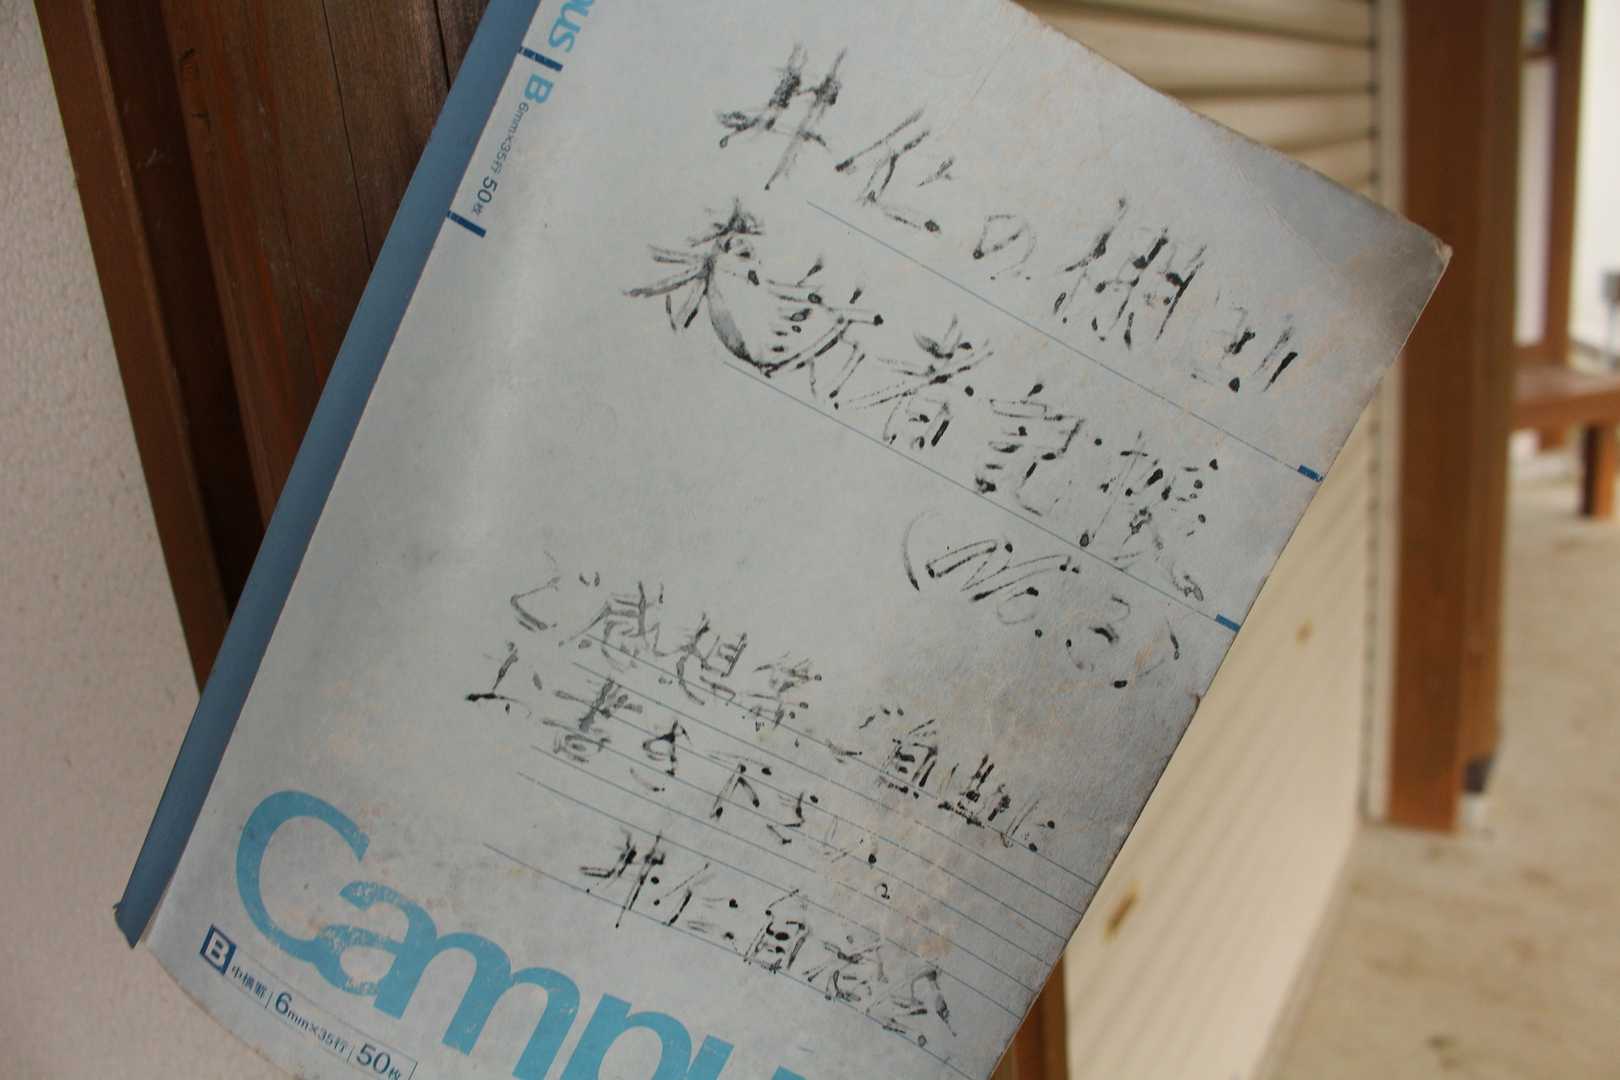 井仁の棚田
来訪者記帳
(No.3)
ご感想等、ご自由に
お書き下さい。
井仁自治会
Campu
B 中横罫 6mm×35行 50枚
pus
B 6mm×35行 50枚